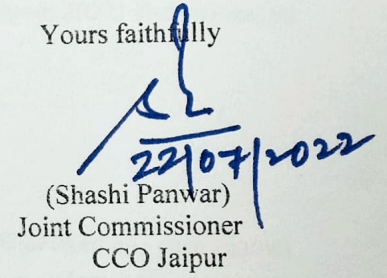 Yours faithfully
22/07/2022
(Shashi Panwar)
Joint Commissioner
CCO Jaipur